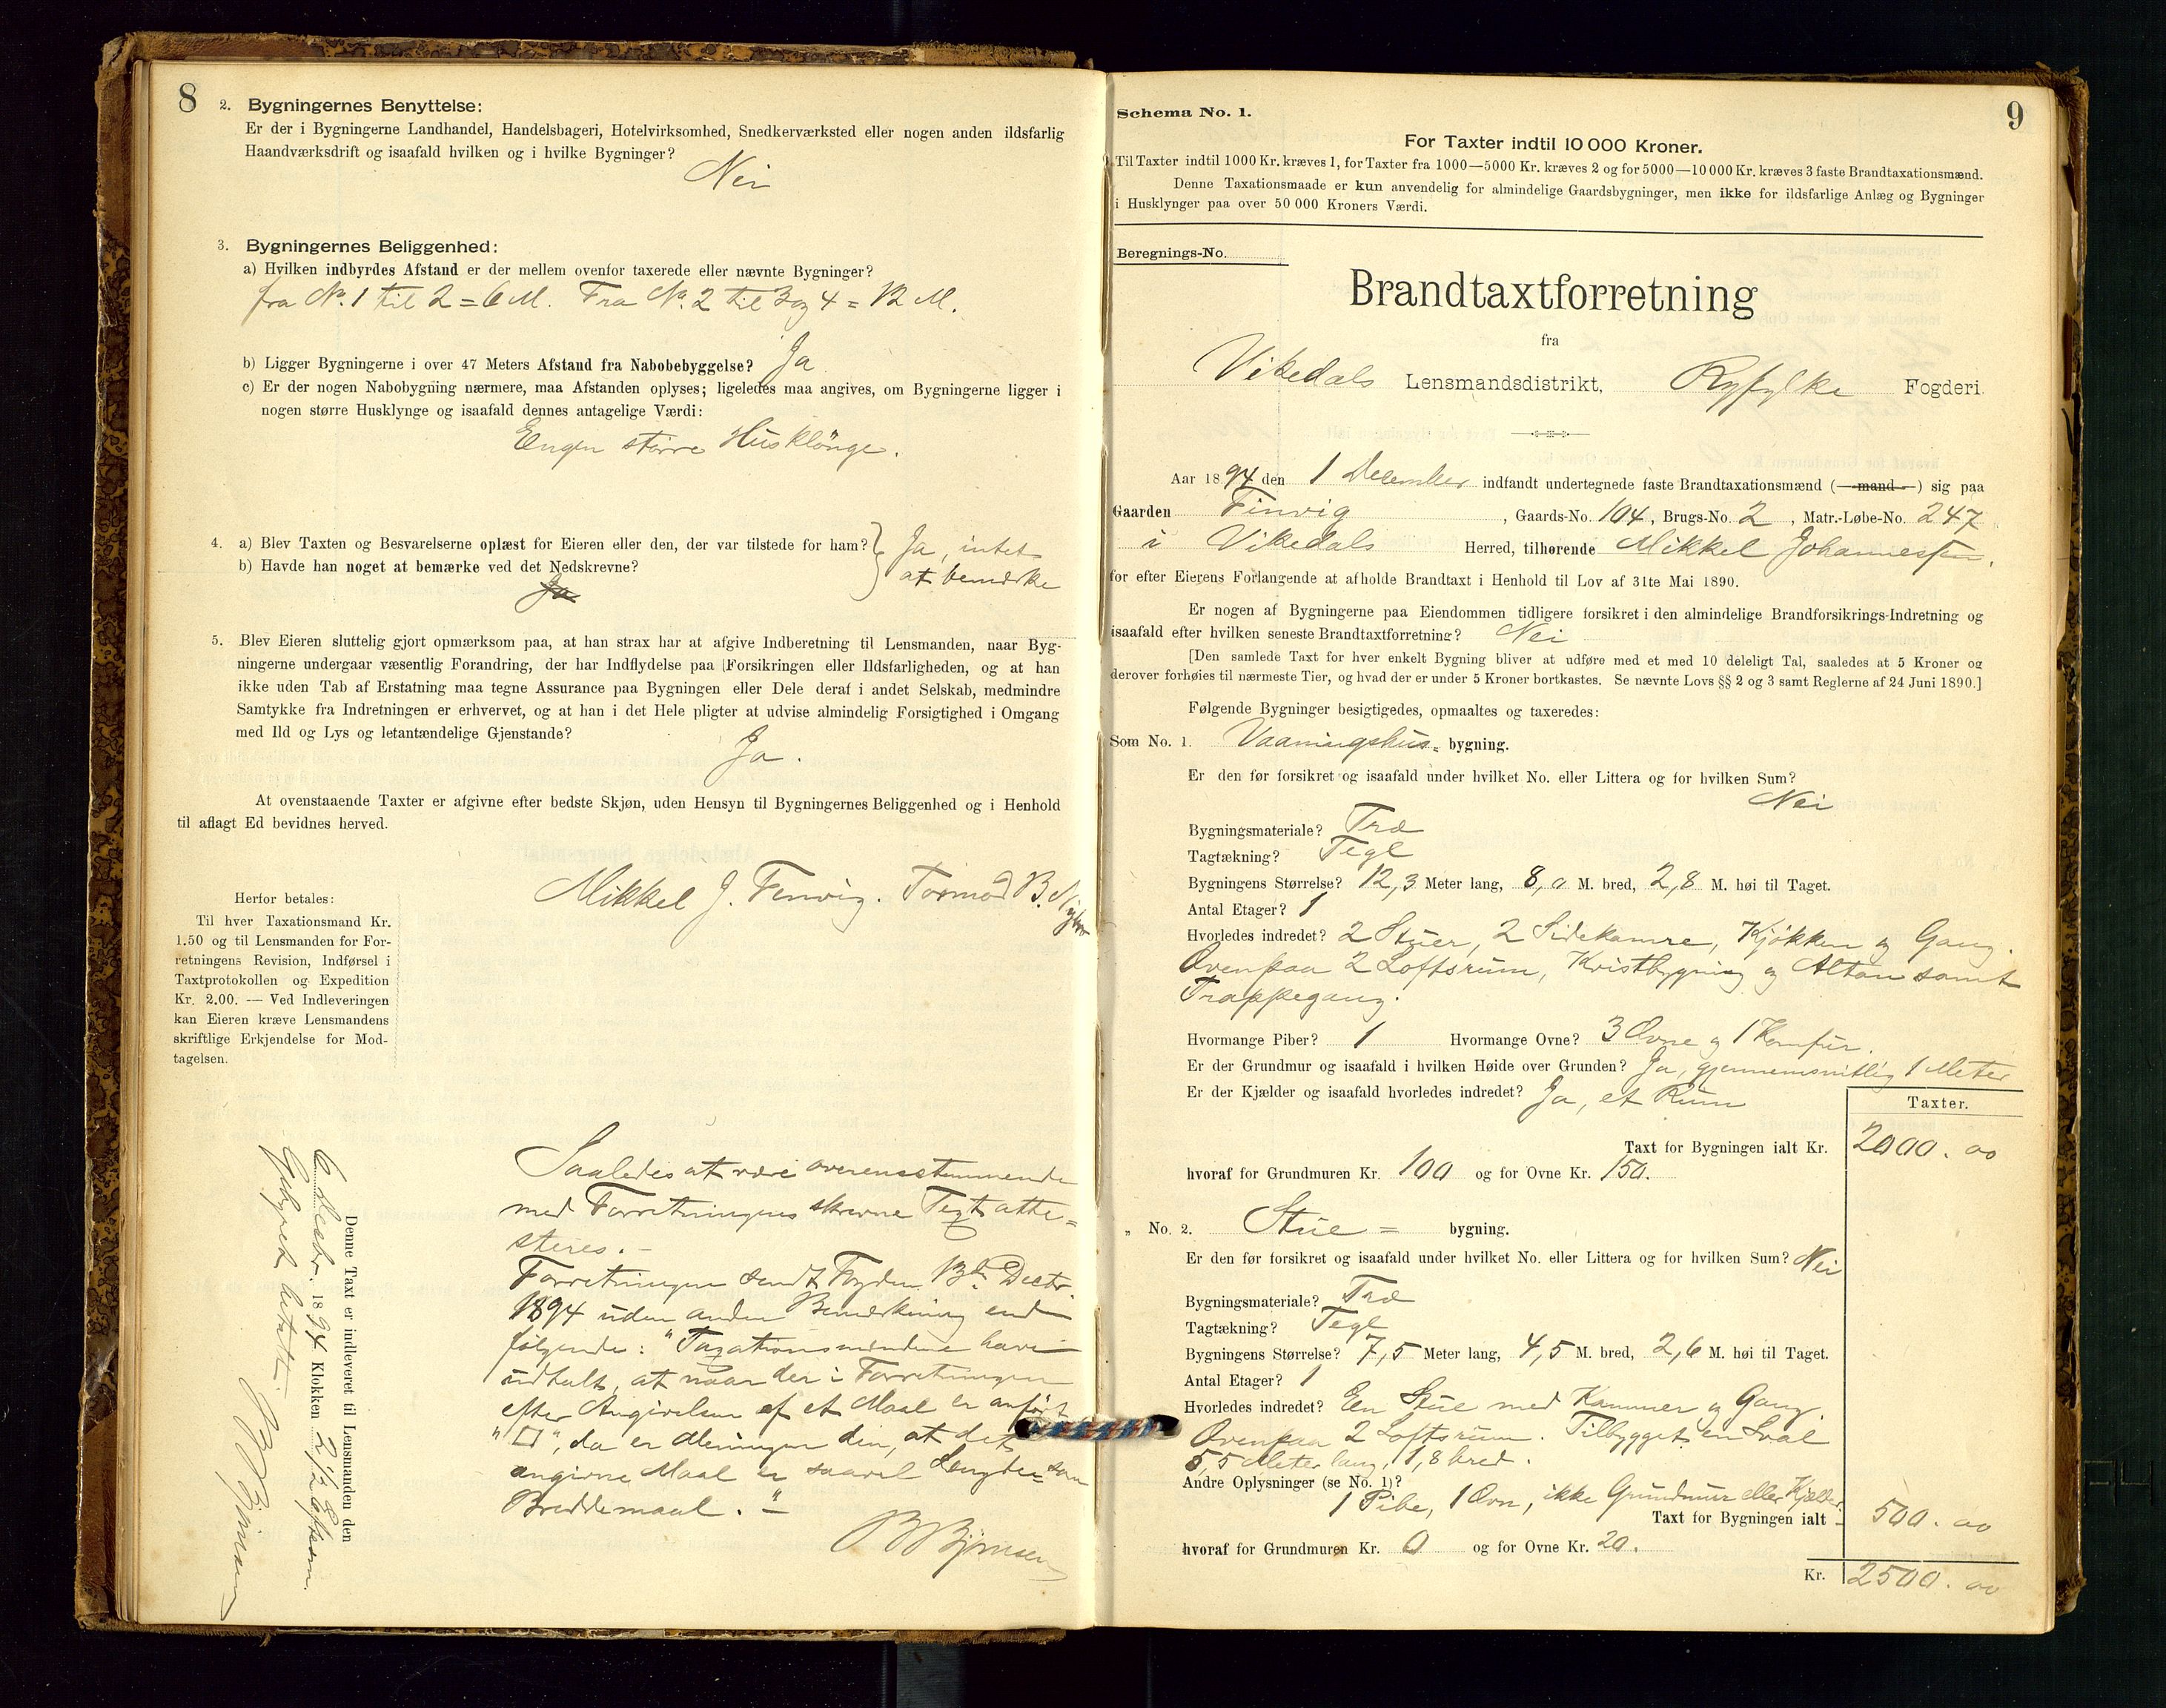 8
2. Bygningernes Benyttelse:
Er der i Bygningerne Landhandel, Handelsbageri, Hotelvirksomhed, Snedkerværksted eller nogen anden ildsfarlig
Haandværksdrift og isaafald hvilken og i hvilke Bygninger?
Nei
3. Bygningernes Beliggenhed:
a) Hvilken indbyrdes Afstand er der mellem ovenfor taxerede eller nævnte Bygninger?
fra No. 1 til 2 = 6 M. Fra No. 2 til 3 og 4 = 12 M.
b) Ligger Bygningerne i over 47 Meters Afstand fra Nabobebyggelse? Ja
c) Er der nogen Nabobygning nærmere, maa Afstanden oplyses; ligeledes maa angives, om Bygningerne ligger i
nogen større Husklynge og isaafald dennes antagelige Værdi:
Engen større Husklönge.
4. a) Blev Taxten og Besvarelserne oplæst for Eieren eller den, der var tilstede for ham? Ja, intet
b) Havde han noget at bemærke ved det Nedskrevne? at bemærke
Ja
5. Blev Eieren sluttelig gjort opmærksom paa, at han strax har at afgive Indberetning til Lensmanden, naar Byg-
ningerne undergaar væsentlig Forandring, der har Indflydelse paa Forsikringen eller Ildsfarligheden, og at han
ikke uden Tab af Erstatning maa tegne Assurance paa Bygningen eller Dele deraf i andet Selskab, medmindre
Samtykke fra Indretningen er erhvervet, og at han i det Hele pligter at udvise almindelig Forsigtighed i Omgang
med Ild og Lys og letantændelige Gjenstande?
Ja.
At ovenstaaende Taxter er afgivne efter bedste Skjøn, uden Hensyn til Bygningernes Beliggenhed og i Henhold
til aflagt Ed bevidnes herved.
Mikkel J. Fenvig. Tormod B.
Herfor betales:
Til hver Taxationsmand Kr.
1.50 og til Lensmanden for For-
retningens Revision, Indførsel i
Taxtprotokollen og Expedition
Kr. 2.00. — Ved Indleveringen
kan Eieren kræve Lensmandens
skriftlige Erkjendelse for Mod-
tagelsen.
Denne Taxt er indleveret til Lensmanden den
6 Decbr. 1894 Klokken 2½ Efterm.
Gebyret betalt.
B Bjørnsen
Saaledes at være overensstemmende
med Forretningens skrevne Text atte=
steres. —
Forretningen sendt Fogden 13de Decbr.
1894 uden anden Bemærkning end
følgende: "Taxationsmændene have
udtalt, at naar der i Forretningen
efter Angivelsen af et Maal er anført
"□", da er Meningen den, at det
angivne Maal er saavel Længde= som
Breddemaal." —
B Bjørnsen
9
Schema No. 1.
For Taxter indtil 10 000 Kroner.
Til Taxter indtil 1000 Kr. kræves 1, for Taxter fra 1000—5000 Kr. kræves 2 og for 5000—10 000 Kr. kræves 3 faste Brandtaxationsmænd.
Denne Taxationsmaade er kun anvendelig for almindelige Gaardsbygninger, men ikke for ildsfarlige Anlæg og Bygninger
i Husklynger paa over 50 000 Kroners Værdi.
Beregnings-No.
Brandtaxtforretning
fra
Vikedals Lensmandsdistrikt, Ryfylke Fogderi.
Aar 1894 den 1 December indfandt undertegnede faste Brandtaxationsmænd (mand) sig paa
Gaarden Finvig, Gaards-No. 104, Brugs-No. 2, Matr.-Løbe-No. 247
i Vikedals Herred, tilhørende Mikkel Johannessen.
for efter Eierens Forlangende at afholde Brandtaxt i Henhold til Lov af 31te Mai 1890.
Er nogen af Bygningerne paa Eiendommen tidligere forsikret i den almindelige Brandforsikrings-Indretning og
isaafald efter hvilken seneste Brandtaxtforretning? Nei
[Den samlede Taxt for hver enkelt Bygning bliver at udføre med et med 10 deleligt Tal, saaledes at 5 Kroner og
derover forhøies til nærmeste Tier, og hvad der er under 5 Kroner bortkastes. Se nævnte Lovs §§ 2 og 3 samt Reglerne af 24 Juni 1890.]
Følgende Bygninger besigtigedes, opmaaltes og taxeredes:
Som No. 1. Vaaningshus= bygning.
Er den før forsikret og isaafald under hvilket No. eller Littera og for hvilken Sum?
Nei
Bygningsmateriale? Træ
Tagtækning? Tegl
Bygningens Størrelse? 12,3 Meter lang, 8,0 M. bred, 2,8 M. høi til Taget.
Antal Etager? 1
Hvorledes indredet? 2 Stuer, 2 Sidekamre, Kjøkken og Gang.
Ovenpaa 2 Loftsrum, Kvistbygning og Altan samt
Trappegang.
Hvormange Piber? 1 Hvormange Ovne? 3 Ovne og 1 Komfur.
Er der Grundmur og isaafald i hvilken Høide over Grunden? Ja, gjennemsnitlig 1 Meter
Er der Kjælder og isaafald hvorledes indredet? Ja, et Rum
Taxter.
Taxt for Bygningen ialt Kr. 2000. 00
hvoraf for Grundmuren Kr. 100 og for Ovne Kr. 150.
„ No. 2. Stue = bygning.
Er den før forsikret og isaafald under hvilket No. eller Littera og for hvilken Sum? Nei
Bygningsmateriale? Træ
Tagtækning? Tegl
Bygningens Størrelse? 7,5 Meter lang, 4,5 M. bred, 2,6 M. høi til Taget.
Antal Etager? 1
Hvorledes indredet? En Stue med Kammer og Gang.
Ovenpaa 2 Loftsrum. Tilbygget en Sval
5,5 Meter lang, 1,8 bred.
Andre Oplysninger (se No. 1)?
1 Pibe, 1 Ovn, ikke Grundmur eller Kjælder.
Taxt for Bygningen ialt - 500. 00
hvoraf for Grundmuren Kr. 0 og for Ovne Kr. 20.
Kr. 2500. 00